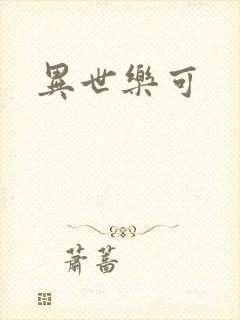 異世樂可
蕭薔